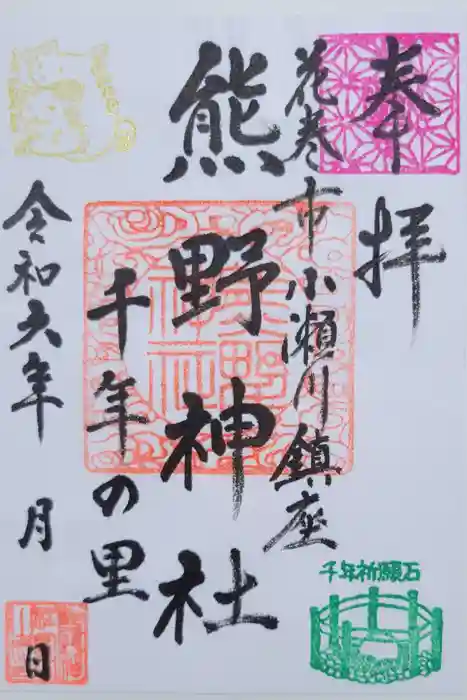 奉拝
花巻市小瀬川鎮座
熊野神社
千年の里
令和六年 月 日
千年祈願石